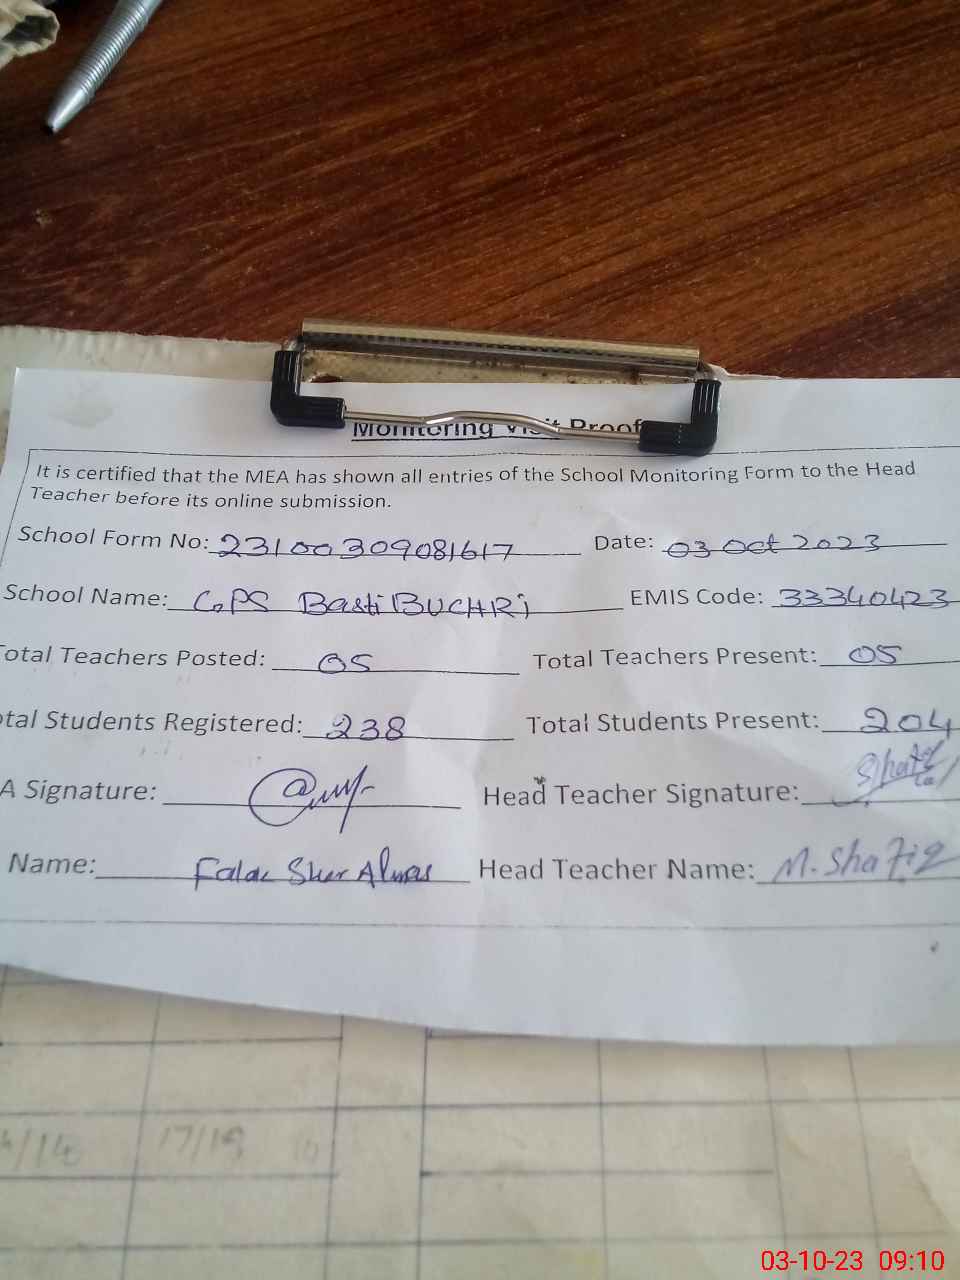 Monitoring Visit Proof
It is certified that the MEA has shown all entries of the School Monitoring Form to the Head
Teacher before its online submission.
School Form No: 23100309081617 Date: 03 Oct 2023
School Name: GPS Basti BUCHRi EMIS Code: 33340423
Total Teachers Posted: 05 Total Teachers Present: 05
otal Students Registered: 238 Total Students Present: 204
A Signature: Head Teacher Signature: Shafiq
Name: Falak Sher Head Teacher Name: M. Shafiq
17/19
03-10-23 09:10